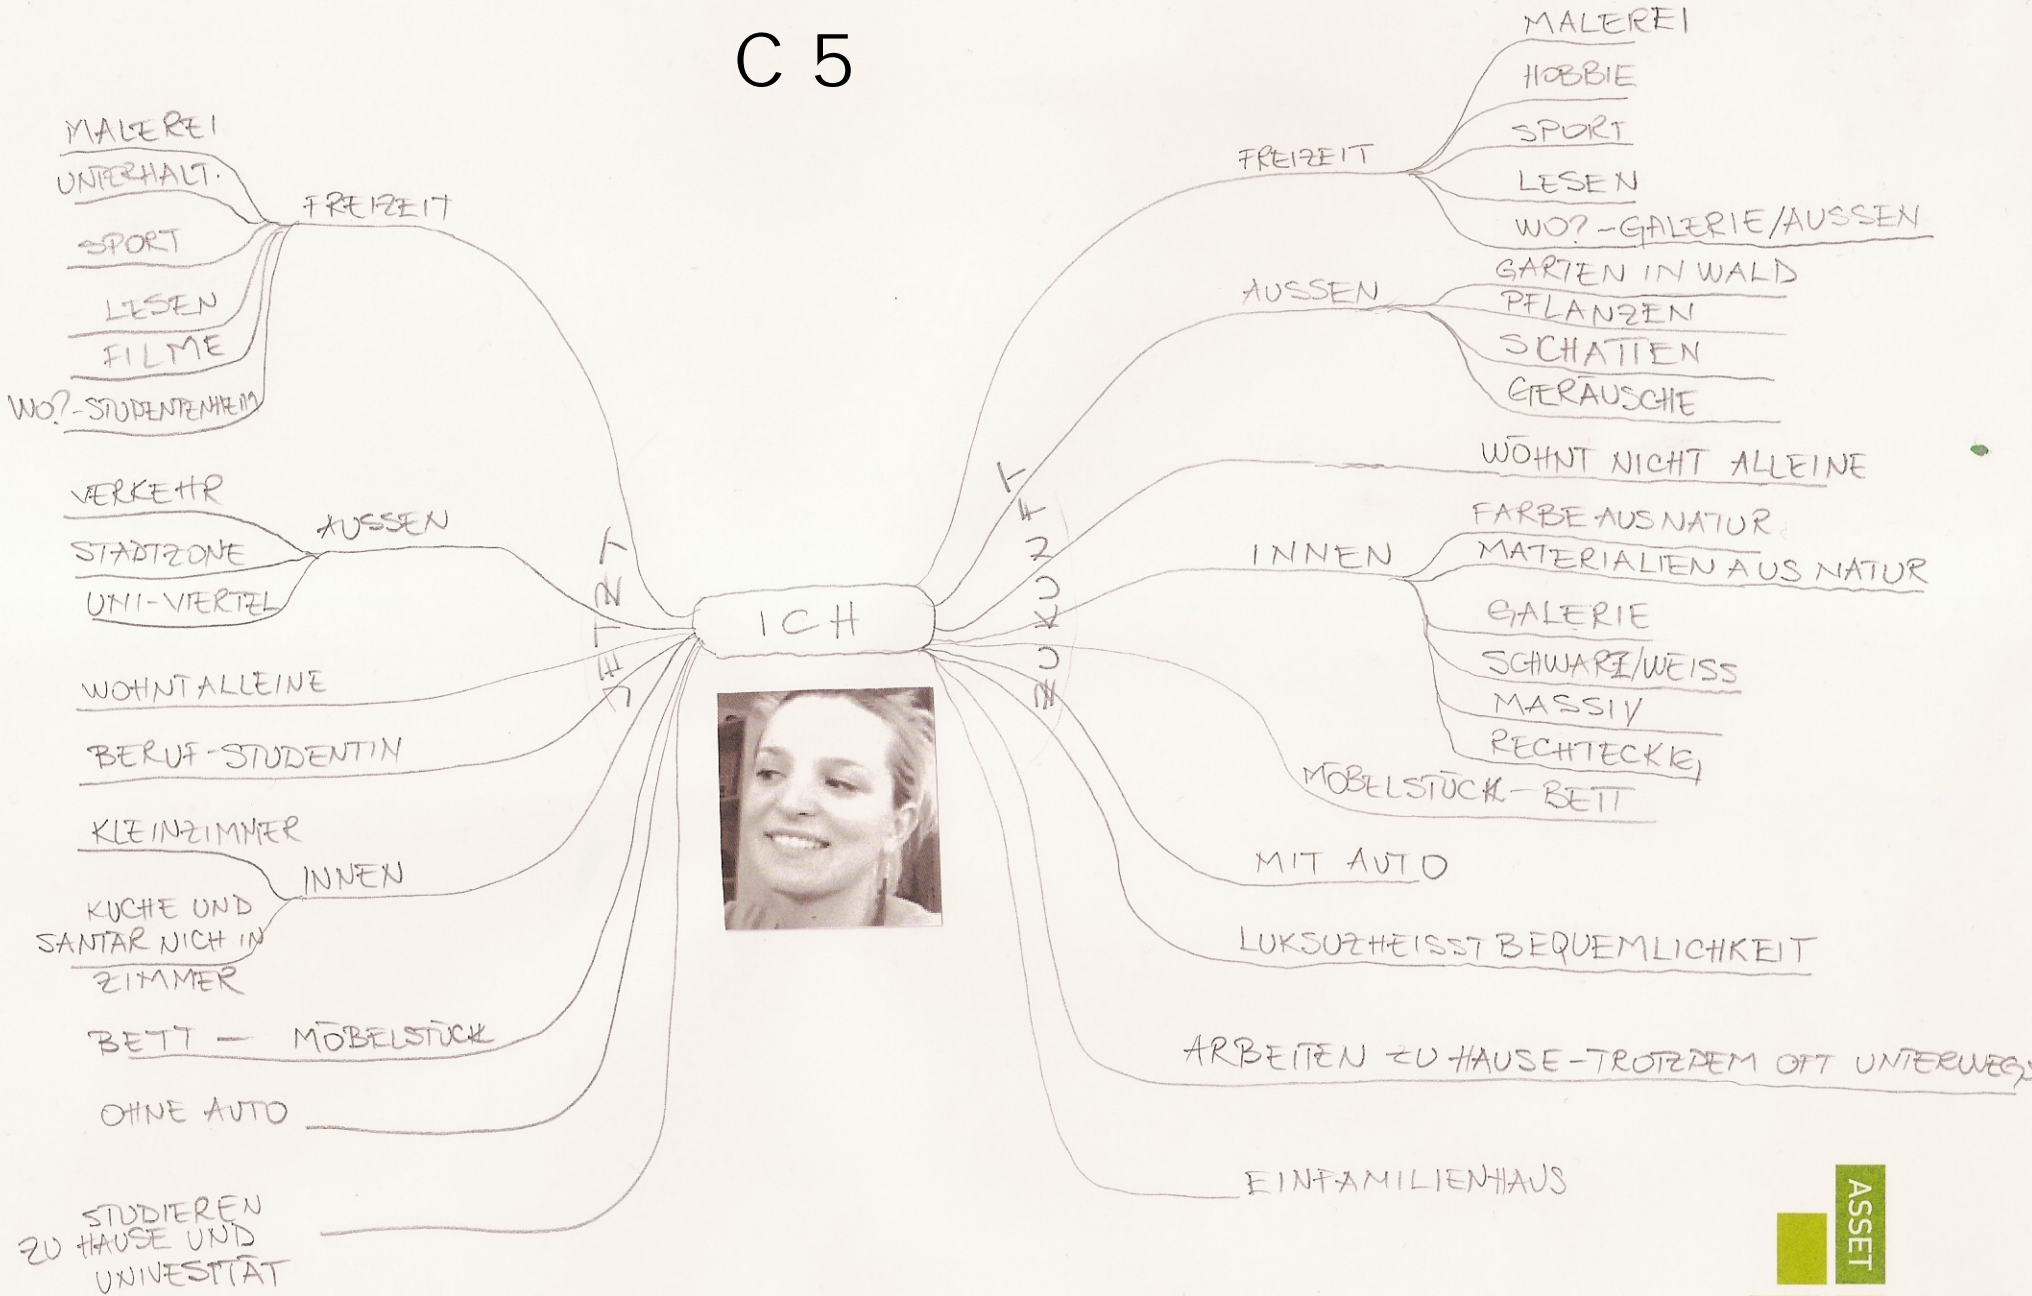 C 5
MALEREI
UNTERHALT.
SPORT
LESEN
FILME
WO?-STUDENTENHEIM
FREIZEIT
VERKEHR
STADTZONE
UNI-VIERTEL
AUSSEN
WOHNT ALLEINE
BERUF-STUDENTIN
KLEINZIMMER
KUCHE UND
SANTAR NICH IN
ZIMMER
INNEN
BETT — MÖBELSTÜCK
OHNE AUTO
STUDIEREN
ZU HAUSE UND
UNIVESITÄT
JETZT
ICH
ZUKUNFT
FREIZEIT
MALEREI
HOBBIE
SPORT
LESEN
WO?-GALERIE/AUSSEN
AUSSEN
GARTEN IN WALD
PFLANZEN
SCHATTEN
GERÄUSCHE
WOHNT NICHT ALLEINE
INNEN
FARBE AUS NATUR
MATERIALIEN AUS NATUR
GALERIE
SCHWARZ/WEISS
MASSIV
RECHTECKIG
MÖBELSTÜCK-BETT
MIT AUTO
LUKSUZ HEISST BEQUEMLICHKEIT
ARBEITEN ZU HAUSE-TROTZDEM OFT UNTERWEGS
EINFAMILIENHAUS
ASSET